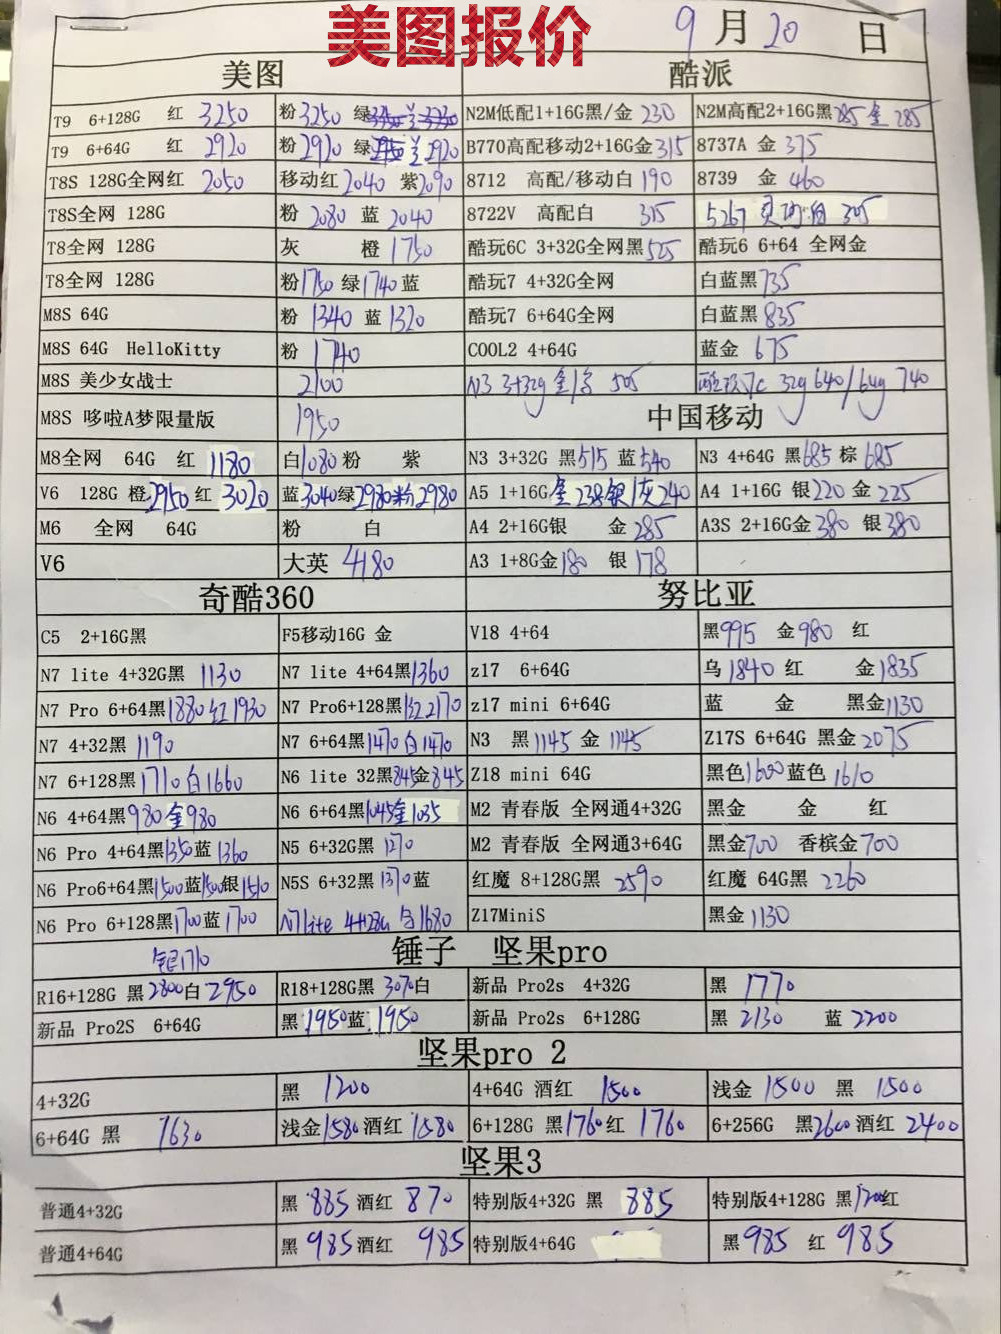 美图报价
9 月 20 日
美图 酷派
T9 6+128G 红 3250 粉 3250 绿 N2M低配1+16G黑/金 230 N2M高配2+16G黑 285 金 285
T9 6+64G 红 2920 粉 2920 绿 兰 2920 B770高配移动2+16G金 315 8737A 金 375
T8S 128G全网红 2050 移动红 2040 紫 2090 8712 高配/移动白 190 8739 金 460
T8S全网 128G 粉 2080 蓝 2040 8722V 高配白 315 5267
T8全网 128G 灰 橙 1750 酷玩6C 3+32G全网黑 525 酷玩6 6+64 全网金
T8全网 128G 粉 1750 绿 1740 蓝 酷玩7 4+32G全网 白蓝黑 735
M8S 64G 粉 1340 蓝 1320 酷玩7 6+64G全网 白蓝黑 835
M8S 64G HelloKitty 粉 1740 COOL2 4+64G 蓝金 675
M8S 美少女战士 2100 N3 3+32g 505 酷玩7C 32g 640/64g 740
M8S 哆啦A梦限量版 1950 中国移动
M8全网 64G 红 1180 白 1080 粉 紫 N3 3+32G 黑 515 蓝 540 N3 4+64G 黑 685 棕 685
V6 128G 橙 2950 红 3020 蓝 3040 绿 2980 粉 2980 A5 1+16G 金 238 银/灰 240 A4 1+16G 银 220 金 225
M6 全网 64G 粉 白 A4 2+16G银 金 285 A3S 2+16G金 380 银 380
V6 大英 4180 A3 1+8G金 180 银 178
奇酷360 努比亚
C5 2+16G黑 F5移动16G 金 V18 4+64 黑 995 金 980 红
N7 lite 4+32G黑 1130 N7 lite 4+64黑 1360 z17 6+64G 乌 1840 红 金 1835
N7 Pro 6+64黑 1880 红 1930 N7 Pro6+128黑 红 2170 z17 mini 6+64G 蓝 金 黑金 1130
N7 4+32黑 1190 N7 6+64黑 1470 白 1470 N3 黑 1145 金 1145 Z17S 6+64G 黑金 2075
N7 6+128黑 1710 白 1660 N6 lite 32黑 845 金 845 Z18 mini 64G 黑色 1600 蓝色 1610
N6 4+64黑 980 金 980 N6 6+64黑 1045 金 1035 M2 青春版 全网通4+32G 黑金 金 红
N6 Pro 4+64黑 1350 蓝 1360 N5 6+32G黑 1270 M2 青春版 全网通3+64G 黑金 700 香槟金 700
N6 Pro6+64黑 1500 蓝 1500 银 1510 N5S 6+32黑 1370 蓝 红魔 8+128G黑 2590 红魔 64G黑 2260
N6 Pro 6+128黑 1700 蓝 1700 N7lite 4+128G 1680 Z17MiniS 黑金 1130
银1710 锤子 坚果pro
R16+128G 黑 2800 白 2950 R18+128G黑 3070 白 新品 Pro2s 4+32G 黑 1770
新品 Pro2S 6+64G 黑 1950 蓝 1950 新品 Pro2s 6+128G 黑 2130 蓝 2200
坚果pro 2
4+32G 黑 1200 4+64G 酒红 1500 浅金 1500 黑 1500
6+64G 黑 1630 浅金 1580 酒红 1580 6+128G 黑 1760 红 1760 6+256G 黑 2600 酒红 2400
坚果3
普通4+32G 黑 885 酒红 870 特别版4+32G 黑 885 特别版4+128G 黑 1200 红
普通4+64G 黑 985 酒红 985 特别版4+64G 黑 985 红 985